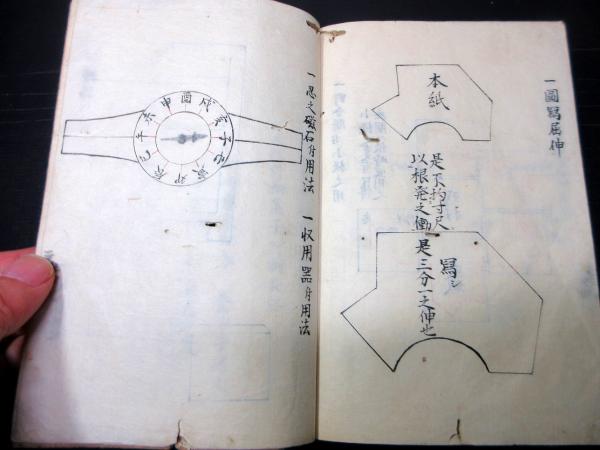 一圖寫屈伸
本紙
是下杓寸尺
以根発之働
是三分一之伸也
寫シ
一忍之磁石自用法
一収用器自用法
子丑寅卯辰巳午未申酉戌亥